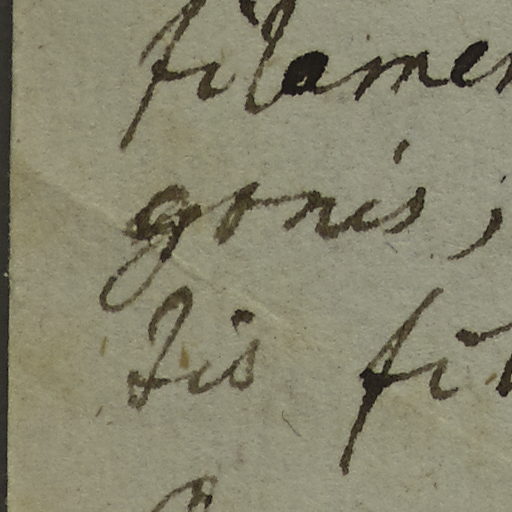 filamen
gonis,
dis fi